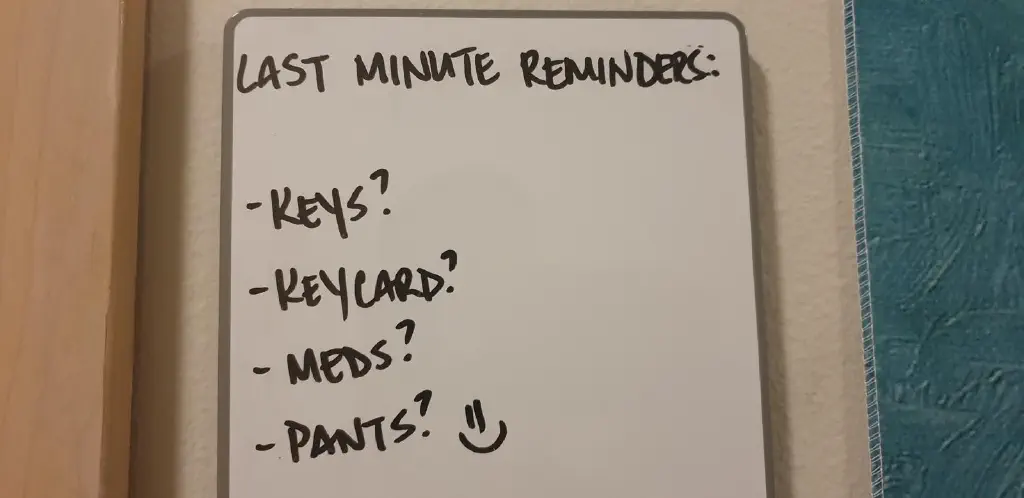 LAST MINUTE REMINDERS:
- KEYS?
- KEYCARD?
- MEDS?
- PANTS? =)